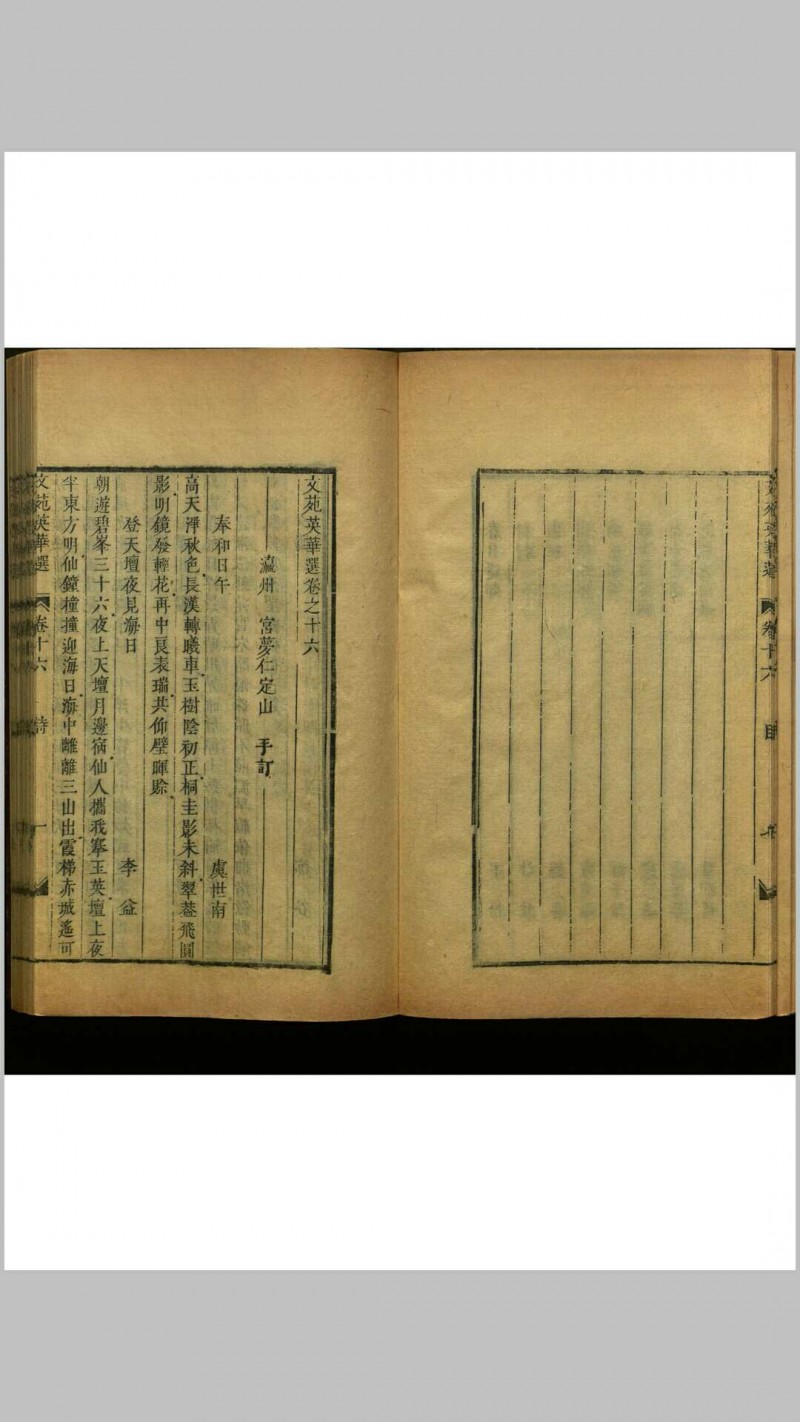 文苑英華選
卷十六
目
文苑英華選卷之十六
瀛州　宮夢仁定山　手訂
奉和日午　虞世南
高天淨秋色長漢轉曦車玉樹陰初正桐圭影未斜翠葢飛圓
影明鏡發輕花再中良表瑞共仰璧暉賒
登天壇夜見海日　李益
朝遊碧峯三十六夜上天壇月邊宿仙人攜我搴玉英壇上夜
半東方明仙鐘撞撞迎海日海中離離三山出霞梯赤城遙可
文苑英華選
卷十六
詩
一